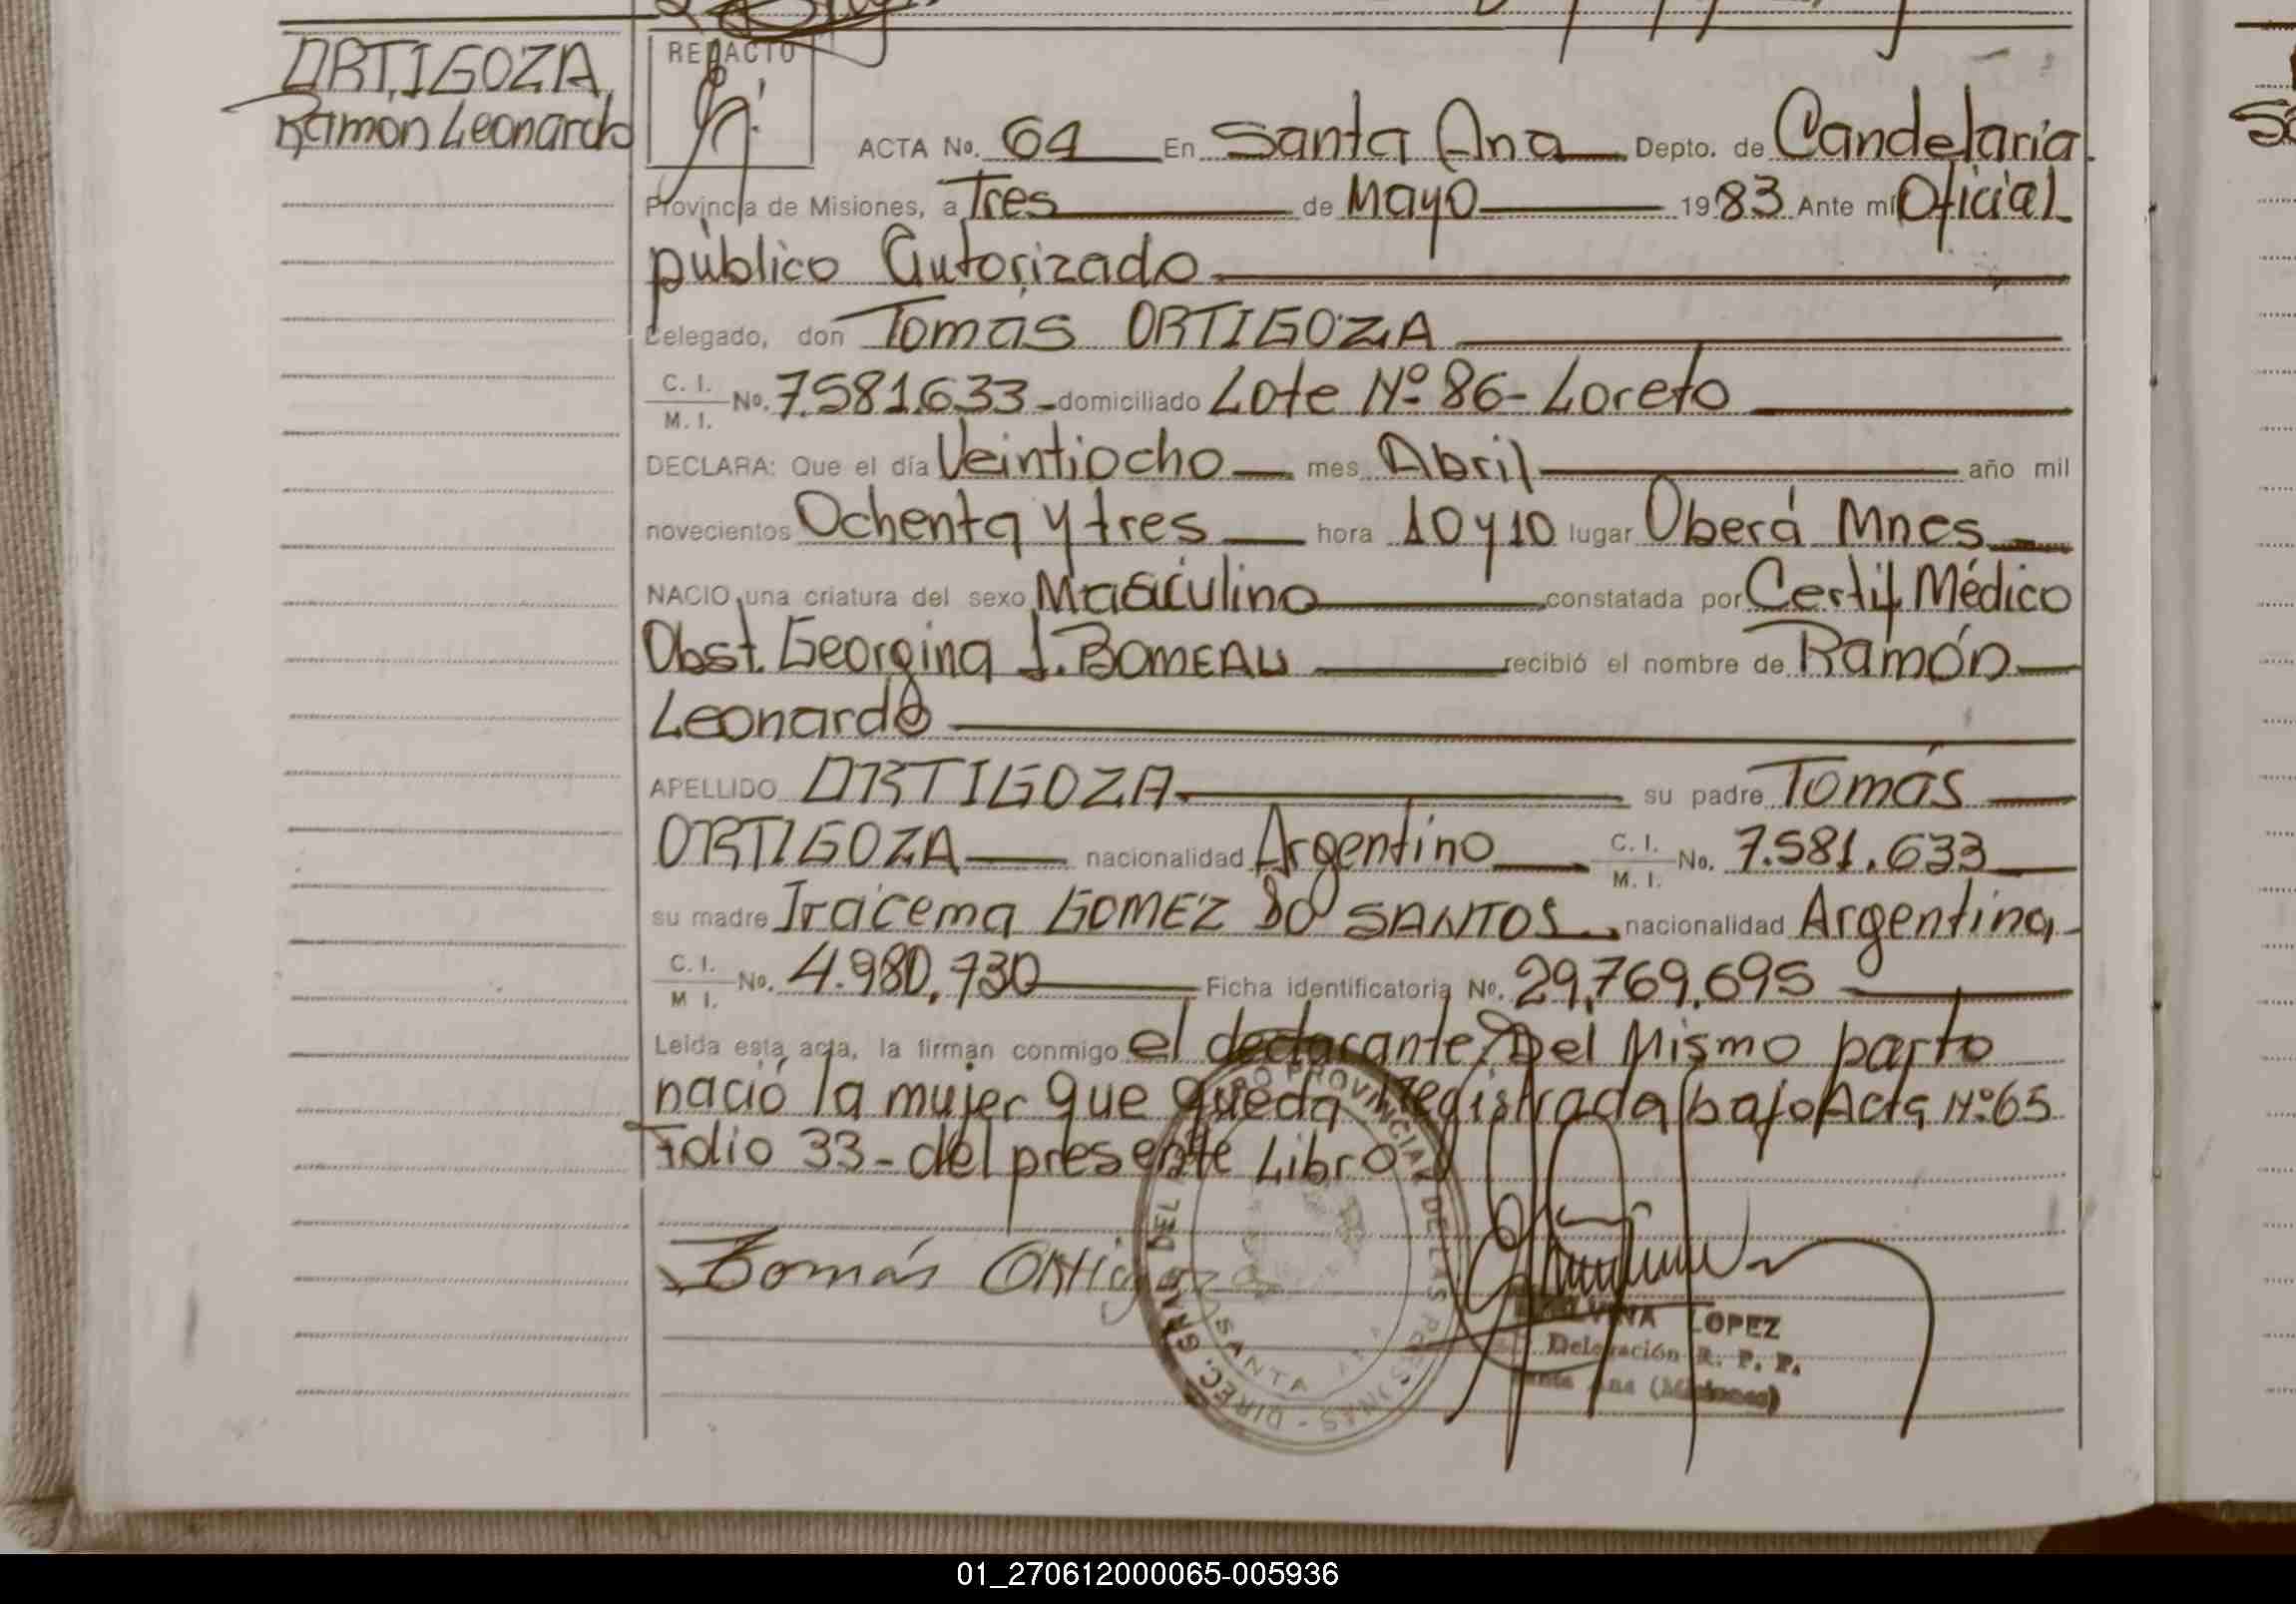 ORTIGOZA
Ramon Leonardo
REDACTO
ACTA No. 64 En Santa Ana Depto. de Candelaria
Provincia de Misiones, a Tres de Mayo 1983 Ante mi Oficial
público Autorizado
Delegado, don Tomás ORTIGOZA
C. I.
M. I. No. 7.581.633 - domiciliado Lote Nº 86 - Loreto
DECLARA: Que el día Veintiocho mes Abril año mil
novecientos Ochenta y tres hora 10 y 10 lugar Oberá Mnes
NACIO una criatura del sexo Masculino constatada por Certif Médico
Obst. Georgina J. BOMEAU recibió el nombre de Ramón
Leonardo
APELLIDO ORTIGOZA su padre Tomás
ORTIGOZA nacionalidad Argentino C. I.
M. I. No. 7.581.633
su madre Iracema GOMEZ DO SANTOS nacionalidad Argentina
C. I.
M I. No. 4.980.730 Ficha identificatoria No. 29.769.695
Leída esta acta, la firman conmigo el declarante. Del Mismo parto
nació la mujer que queda registrada bajo Acta Nº 65
Folio 33 - del presente Libro
Tomás Ortigoza
DIREC. GRAL. DEL PROVINCIAL DE LAS PERSONAS
SANTA ANA
LOPEZ
Delegación R. P. P.
Ana (Misiones)
01_270612000065-005936